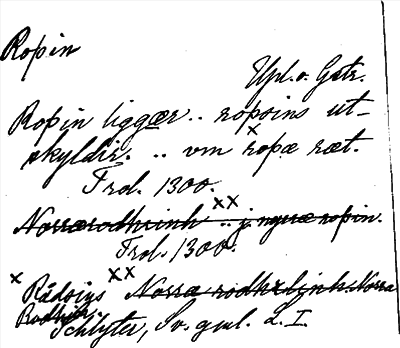 Ropin
Upl. o. Gstr.
Ropin liggær .. ropoins ut-
skyldir. .. vm ropæ ræt.
x
Frd. 1300.
xx
Norrærodhrinh .. j nyrræ ropin.
Frd. 1300.
x Rådoiys xx Norræ rodhrlinh. Norra
Rodhin.
Schlyter, Sv. gml. L. I.